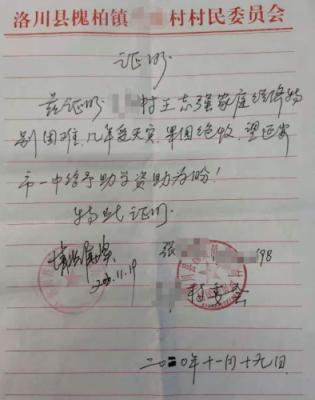 洛川县槐柏镇 村村民委员会
证明
兹证明 村王志强家庭经济特
别困难,几年受天灾,果园绝收,望延安
市一中给予助学资助为盼!
特此证明.
情况属实 张 198
2020.11.19 村委会
二〇二〇年十一月十九日